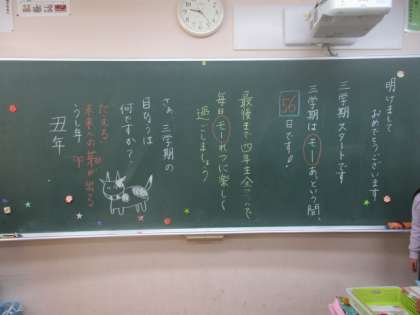 明けまして
おめでとうございます
三学期スタートです
三学期は モー あという間、
56 日です！
最後まで四年生全クラスで
毎日 モー れつに楽しく
過ごしましょう
さぁ、三学期の
目ひょうは
何ですか？
たえる
未来への芽が出る
うし年
丑年